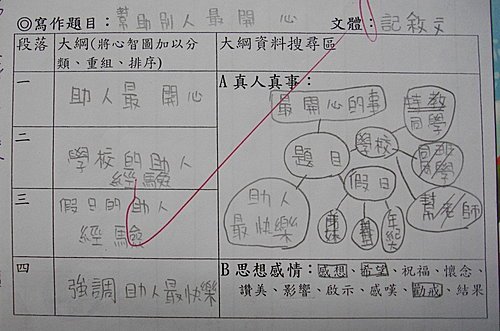 ◎寫作題目：幫助別人最開心 文體：記敘文
段落 大綱(將心智圖加以分類、重組、排序) 大綱資料搜尋區
一 助人最開心
二 學校的助人
經驗
三 假日的助人
經驗
四 強調助人最快樂
A 真人真事：
最開心的事
題目
助人
最快樂
學校
特教
同學
同班
同學
幫老師
假日
B 思想感情：感想、希望、祝福、懷念、
讚美、影響、啟示、感嘆、勸戒、結果